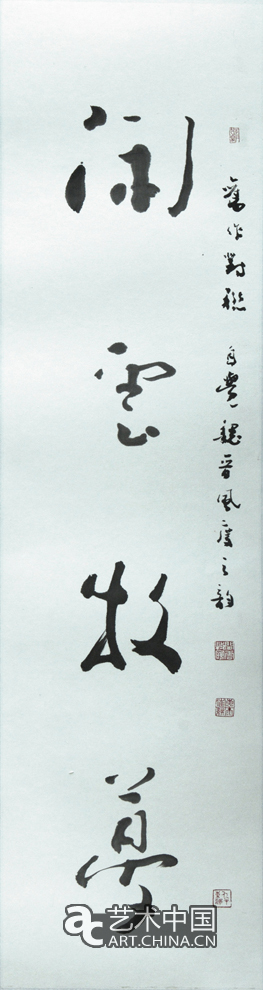 舊作對聯 自覺魏晉風度之韵
閑雲牧夢
艺术中国
ART.CHINA.CN